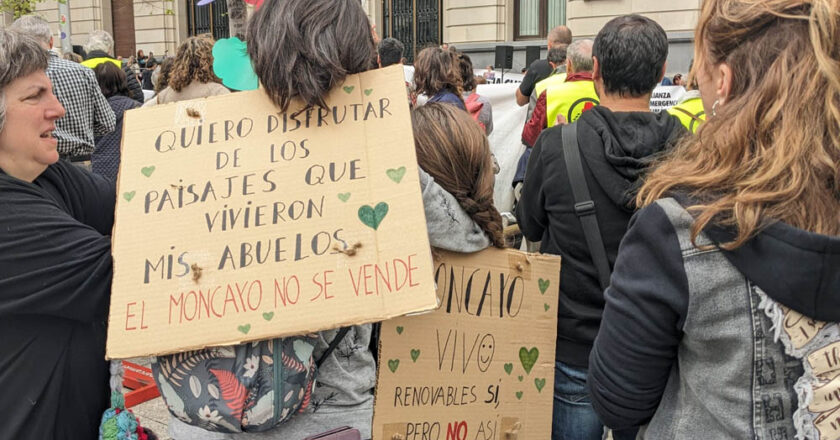 QUIERO DISFRUTAR
DE LOS
PAISAJES QUE
VIVIERON
MIS ABUELOS
EL MONCAYO NO SE VENDE
MONCAYO
VIVO
RENOVABLES SÍ,
PERO NO ASÍ
ALIANZA
EMERGEN